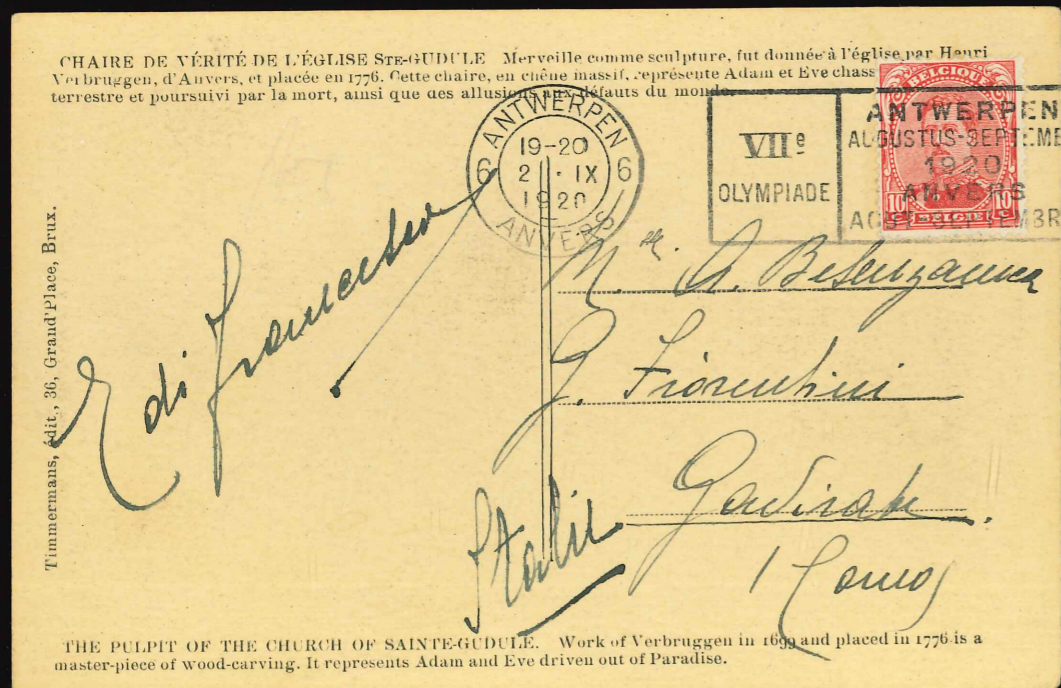 CHAIRE DE VÉRITÉ DE L'ÉGLISE STE-GUDULE Merveille comme sculpture, fut donnée à l'église par Henri
Verbruggen, d'Anvers, et placée en 1776. Cette chaire, en chêne massif, représente Adam et Eve chass
terrestre et poursuivi par la mort, ainsi que des allusions aux défauts du monde.
BELGIQUE
10 C
10 C
BELGIË
ANTWERPEN
6 19-20 6
2 · IX
1920
ANVERS
VIIe
OLYMPIADE
ANTWERPEN
AUGUSTUS-SEPTEMB
1920
ANVERS
AOUT-SEPTEMBR
Timmermans, édit., 36, Grand'Place, Brux.
E di Francesco
M. A.
G. Fiorentini
Gavirate
(Como)
Italie
THE PULPIT OF THE CHURCH OF SAINTE-GUDULE. Work of Verbruggen in 1699 and placed in 1776 is a
master-piece of wood-carving. It represents Adam and Eve driven out of Paradise.